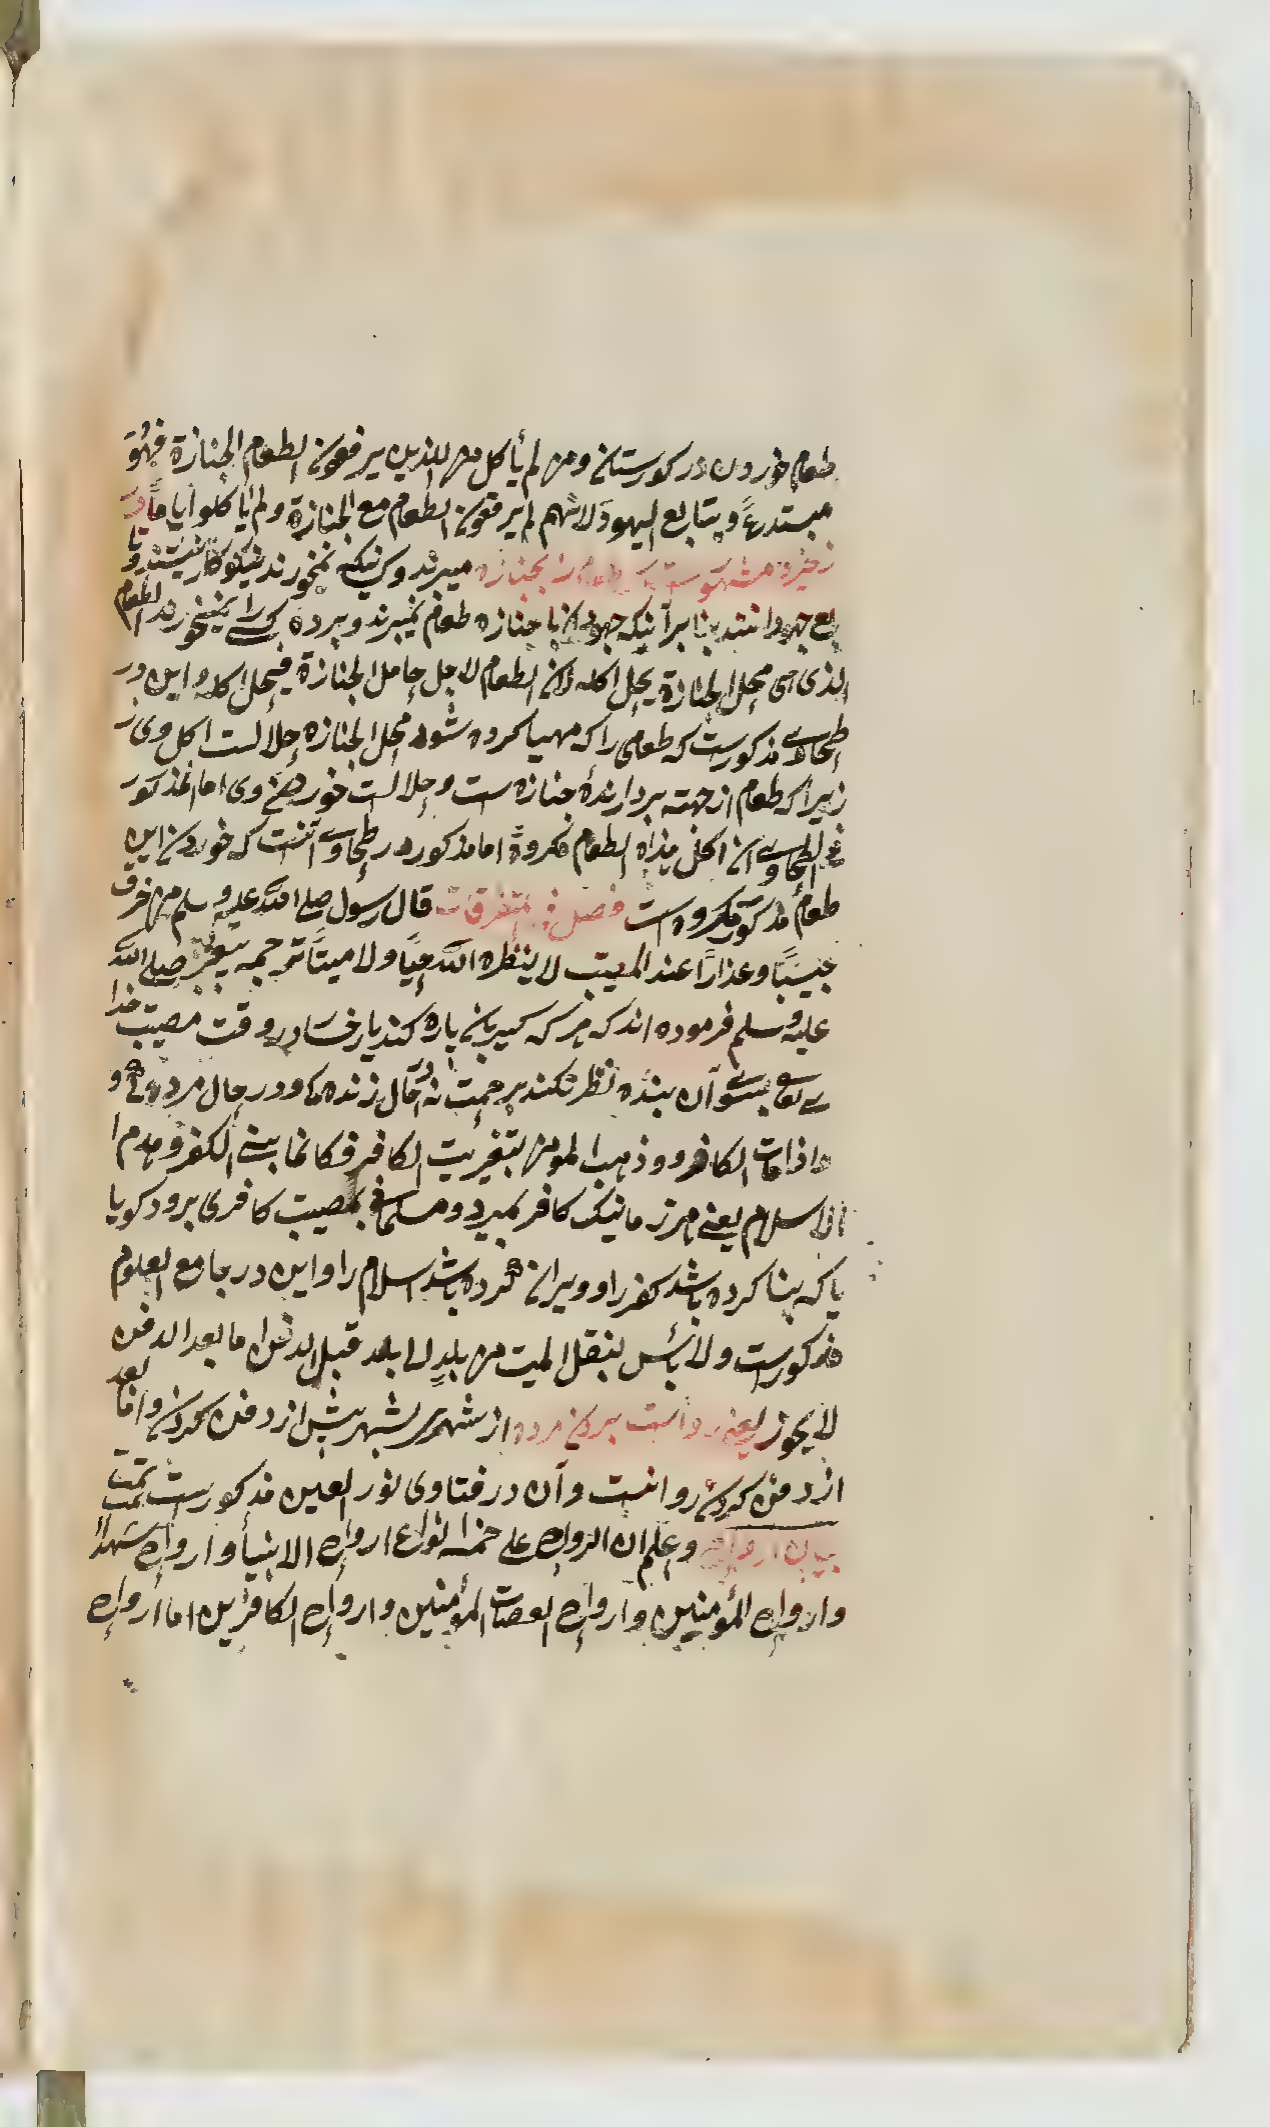 طعام خوردن در کورستانی ومن لم یأکل من الذین یرفعون الطعام الجنازة فهُوَ
مبتدعاً و یتابع الیهود لانهم لم یرفعون الطعام مع الجنازة ولم یأکلوا ایاماً در
ذخیره مشهوست که طعام بجنازه میبرند وکسانیکه نمیخورند نیکوکار نیستند و تا
بع جهودانند بنابرآنیکه جهودان با جنازه طعام نمیبرند و برده کی را نمیخورند الطعام
الذی هی محل الجنازة یحل اکله لان الطعام لاجل حامل الجنازة فیحل اکله واین در
طحاوے مذکورست که طعامی را که مهیا کرده شود محل الجنازه حلالست اکل وی ز
زیرا که طعام از جهته بردارندهٔ جنازه ست و حلالست خوردنی وی اما المذکور
فی الطحاوے ان اکل هذاه الطعام مکروهٌ اما مذکور در طحاوے آنست که خوردن این
طعام مذکور مکروه است فصل فی متفرقات قال رسول صلے الله علیه وسلم من خرق
جیبًا وعذارًا عند المصیبت لا ینظره الله حیًا ولا میتًا ترجمه پیغمبر صلے الله
علیه وسلم فرموده اند که هر که کیریان پاره کند یا رخسار در وقت مصیبت خدا
ے تعالے بسوے آن بنده نظر نکند برحمت نه در حال زنده کی و در حال مرده کی و
واذا مات الکافر و وذهب المومن بتعزیت الکافر فکانما بینی الکفر و هدم ا
الاسلام یعنے هر زمانیکه کافر بمیرد و مسلمانی بمصیبت کافری برود کویا
یا که بنا کرده باشد کفر را و ویران کرده باشد اسلام را واین در جامع العلوم
مذکورست ولا بأس لنقل المیت من بلدٍ الی بلد قبل الدفن اما بعد الدفن
لا یجوز یعنی رواست بردن مرده از شهری بشهر پیش از دفن کردن واما بعد
از دفن کردن روانیست وآن در فتاوی نور العین مذکورست تمت تمت
بیان ارواح واعلم ان الرواح علی خمسه انواع ارواح الانبیأ و ارواح شهدا
وارواح المؤمنین و ارواح العصات المؤمنین و ارواح الکافرین اما ارواح